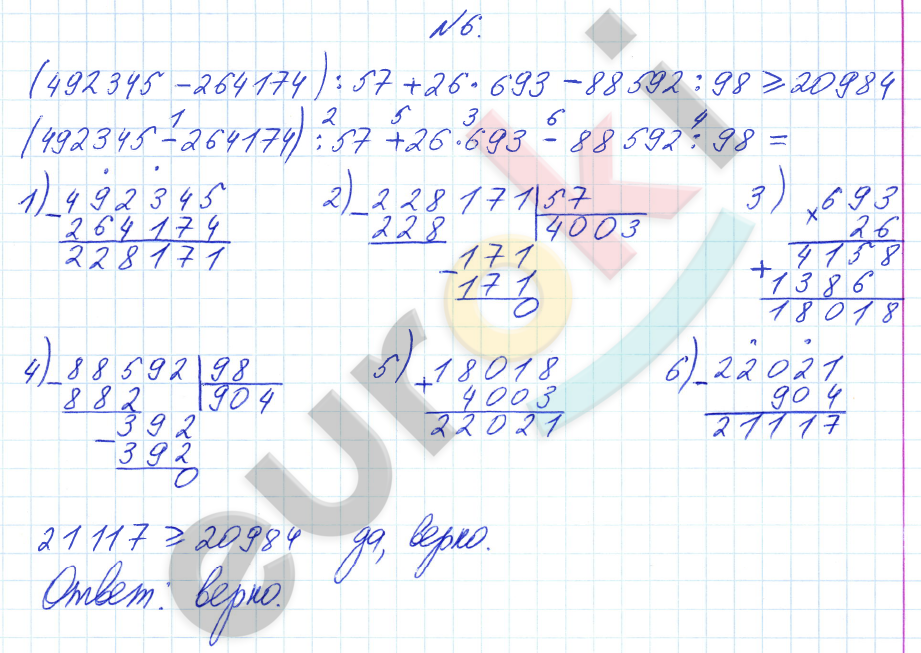 №6.
(492345 – 264174) : 57 + 26 · 693 – 88592 : 98 ≥ 20984
1 2 5 3 6 4
(492345 – 264174) : 57 + 26 · 693 – 88592 : 98 =
1) – 492345
264174
228171
2) – 228171 | 57
228 4003
– 171
171
0
3) × 693
26
+ 4158
1386
18018
4) – 88592 | 98
882 904
– 392
392
0
5) + 18018
4003
22021
6) – 22021
904
21117
21117 ≥ 20984 да, верно.
Ответ: верно.
euroki